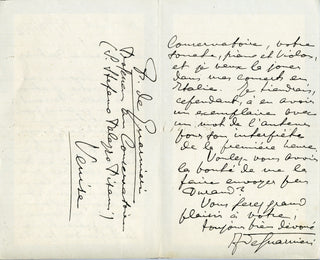 Conservatoire, votre
sonate, piano et violon,
et je veux la jouer
dans mes concerts en
Italie. Je tiendrais,
cependant, à en avoir
un exemplaire avec
un mot de l'auteur
pour son interprète
de la première heure.
Voulez vous avoir
la bonté de me la
faire envoyer par
Durand?
Vous ferez grand
plaisir à votre,
toujours bien dévoué
F. de Guarnieri
F. de Guarnieri
Professeur au Conservatoire
(S. Stefano Palazzo Pisani)
Venise